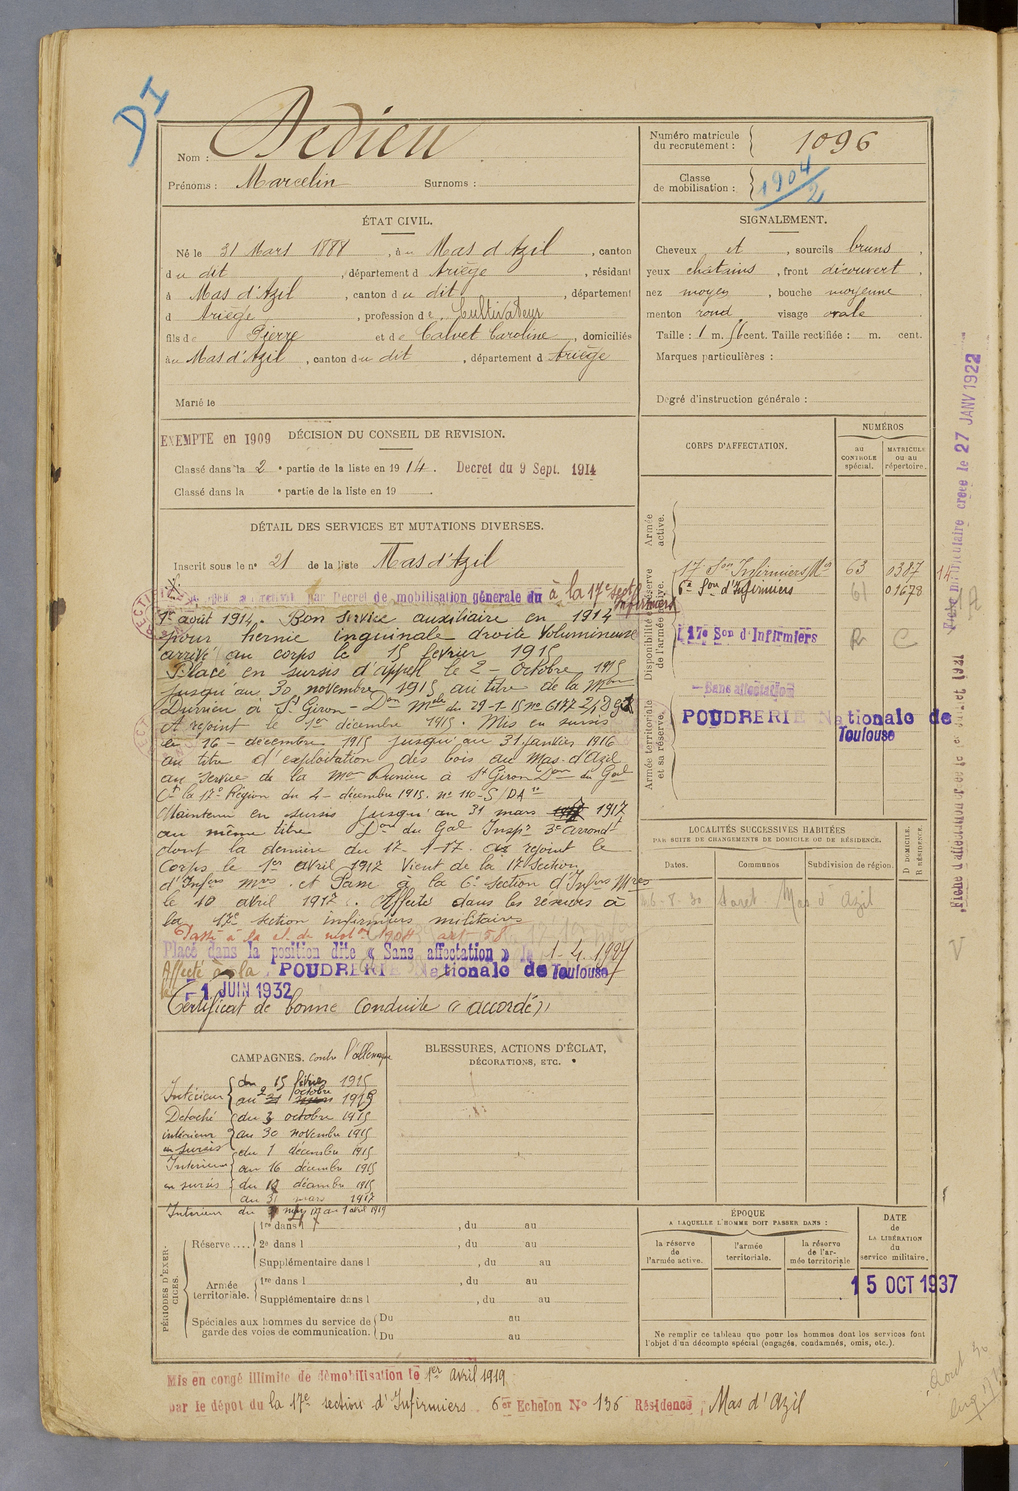 DI
Nom : Dedieu
Prénoms : Marcelin Surnoms :
Numéro matricule du recrutement : 1096
Classe de mobilisation : 1904/2
ÉTAT CIVIL.
Né le 31 Mars 1888, à Mas d'Azil, canton
du dit, département d Ariège, résidant
à Mas d'Azil, canton du dit, département
d Ariège, profession de Cultivateur
fils de Pierre et de Calvet Caroline, domiciliés
au Mas d'Azil, canton du dit, département d Ariège
Marié le
SIGNALEMENT.
Cheveux et, sourcils bruns,
yeux chatains, front découvert,
nez moyen, bouche moyenne
menton rond, visage ovale
Taille : 1 m. 56 cent. Taille rectifiée : m. cent.
Marques particulières :
Degré d'instruction générale :
EXEMPTE en 1909 DÉCISION DU CONSEIL DE REVISION.
Classé dans la 2e partie de la liste en 1914. Decret du 9 Sept. 1914
Classé dans la e partie de la liste en 19 .
DÉTAIL DES SERVICES ET MUTATIONS DIVERSES.
Inscrit sous le no 21 de la liste Mas d'Azil
par Decret de mobilisation générale du à la 17e sect. Infirmiers
1er août 1914. Bon service auxiliaire en 1914
pour hernie inguinale droite volumineuse
arrivé au corps le 15 février 1915
Placé en sursis d'appel le 2 - octobre 1915
jusqu'au 30 novembre 1915 au titre de la Mon
Dunieu à St Giron -
A rejoint le 1er décembre 1915. Mis en sursis
le 16 - décembre 1915 jusqu'au 31 janvier 1916
au titre d'exploitation des bois au Mas-d'Azil
au service de la Mon Dunieu à St Giron Don du Gal
Ct la 17e Région du 4 - décembre 1915. no 110-S/DA
Maintenu en sursis jusqu'au 31 mars 1917
au même titre Don du Gal Inspr 3e arrondt
dont la dernière du 17-1-17. a rejoint le
corps le 1er avril 1917 Vient de la 17 section
d'Infers Mres et Passé à la 6e section d'Infers Mres
le 10 avril 1917. Affecté dans les réserves à
la 17e section infirmiers militaires
Passé à la cl. de mobon 1904 art 58
Placé dans la position dite « Sans affectation » le 1-4-1927
Affecté à la POUDRERIE Nationale de Toulouse
le -1 JUIN 1932
Certificat de bonne conduite "accordé"
CORPS D'AFFECTATION.
NUMÉROS
au CONTROLE spécial.
MATRICULE ou au répertoire.
Armée active.
Disponibilité et réserve de l'armée active.
17 Son Infirmiers Mres 63 0387
6e Son d'Infirmiers 61 01678
17e Son d'Infirmiers R C
Armée territoriale et sa réserve.
Sans affectation
POUDRERIE Nationale de Toulouse
LOCALITÉS SUCCESSIVES HABITÉES
PAR SUITE DE CHANGEMENTS DE DOMICILE OU DE RÉSIDENCE.
D DOMICILE. R RÉSIDENCE.
Dates. Communes Subdivision de région.
Mas d'Azil
CAMPAGNES. contre l'allemagne
Intérieur du 15 février 1915
au 2 octobre 1915
Detaché du 3 octobre 1915
intérieur au 30 novembre 1915
en sursis du 1 décembre 1915
Intérieur au 16 décembre 1915
en sursis du 17 décembre 1915
au 31 mars 1917
Interieur du au 1 avril 1919
BLESSURES, ACTIONS D'ÉCLAT,
DÉCORATIONS, ETC.
PÉRIODES D'EXERCICES.
Réserve .... 1re dans l , du au
2e dans l , du au
Supplémentaire dans l , du au
Armée territoriale. 1re dans l , du au
Supplémentaire dans l , du au
Spéciales aux hommes du service de garde des voies de communication. Du au
Du au
ÉPOQUE
A LAQUELLE L'HOMME DOIT PASSER DANS :
la réserve de l'armée active.
l'armée territoriale.
la réserve de l'armée territoriale
DATE de LA LIBÉRATION du service militaire.
15 OCT 1937
Ne remplir ce tableau que pour les hommes dont les services font
l'objet d'un décompte spécial (engagés, condamnés, omis, etc.).
Mis en congé illimité de démobilisation le 1er avril 1919
par le dépot du la 17e section d'Infirmiers 6er Echelon No 136 Résidence : Mas d'Azil
27 JANV 1922